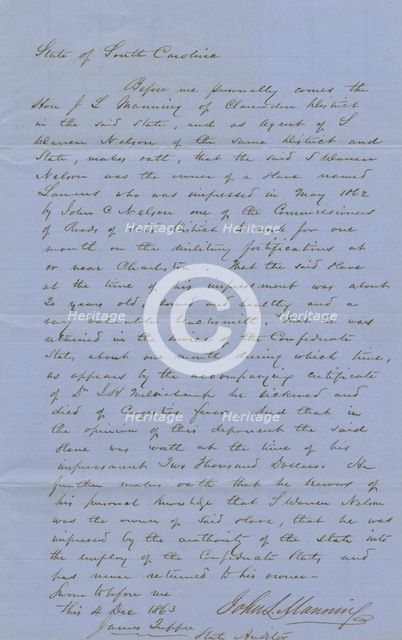 State of South Carolina
Before me personally comes the
Hon J L Manning of Clarendon District
in the said State, and as Agent of S
Warren Nelson of the same District and
State, makes oath, that the said S Warren
Nelson was the owner of a slave named
who was impressed in May 1862
by John C Nelson one of the Commissioners
of Roads of said District to work for one
month on the military fortifications at
or near Charleston. That the said slave
at the time of his impressment was about
years old, sound and healthy and a
very valuable blacksmith. That he was
retained in the service of the Confederate
States about one month during which time,
as appears by the accompanying certificate
of Dr he sickened and
died of fever. And that in
the opinion of this deponent the said
slave was worth at the time of his
impressment Two Thousand Dollars. He
further makes oath that he knows of
his personal knowledge that S Warren Nelson
was the owner of said slave, that he was
impressed by the authority of the State into
the employ of the Confederate States and
has never returned to his owner—
Sworn to before me
this 4 Dec 1863
John L Manning
James Tupper
State Auditor
Heritage
Heritage
Heritage
Heritage
Heritage
Heritage
C